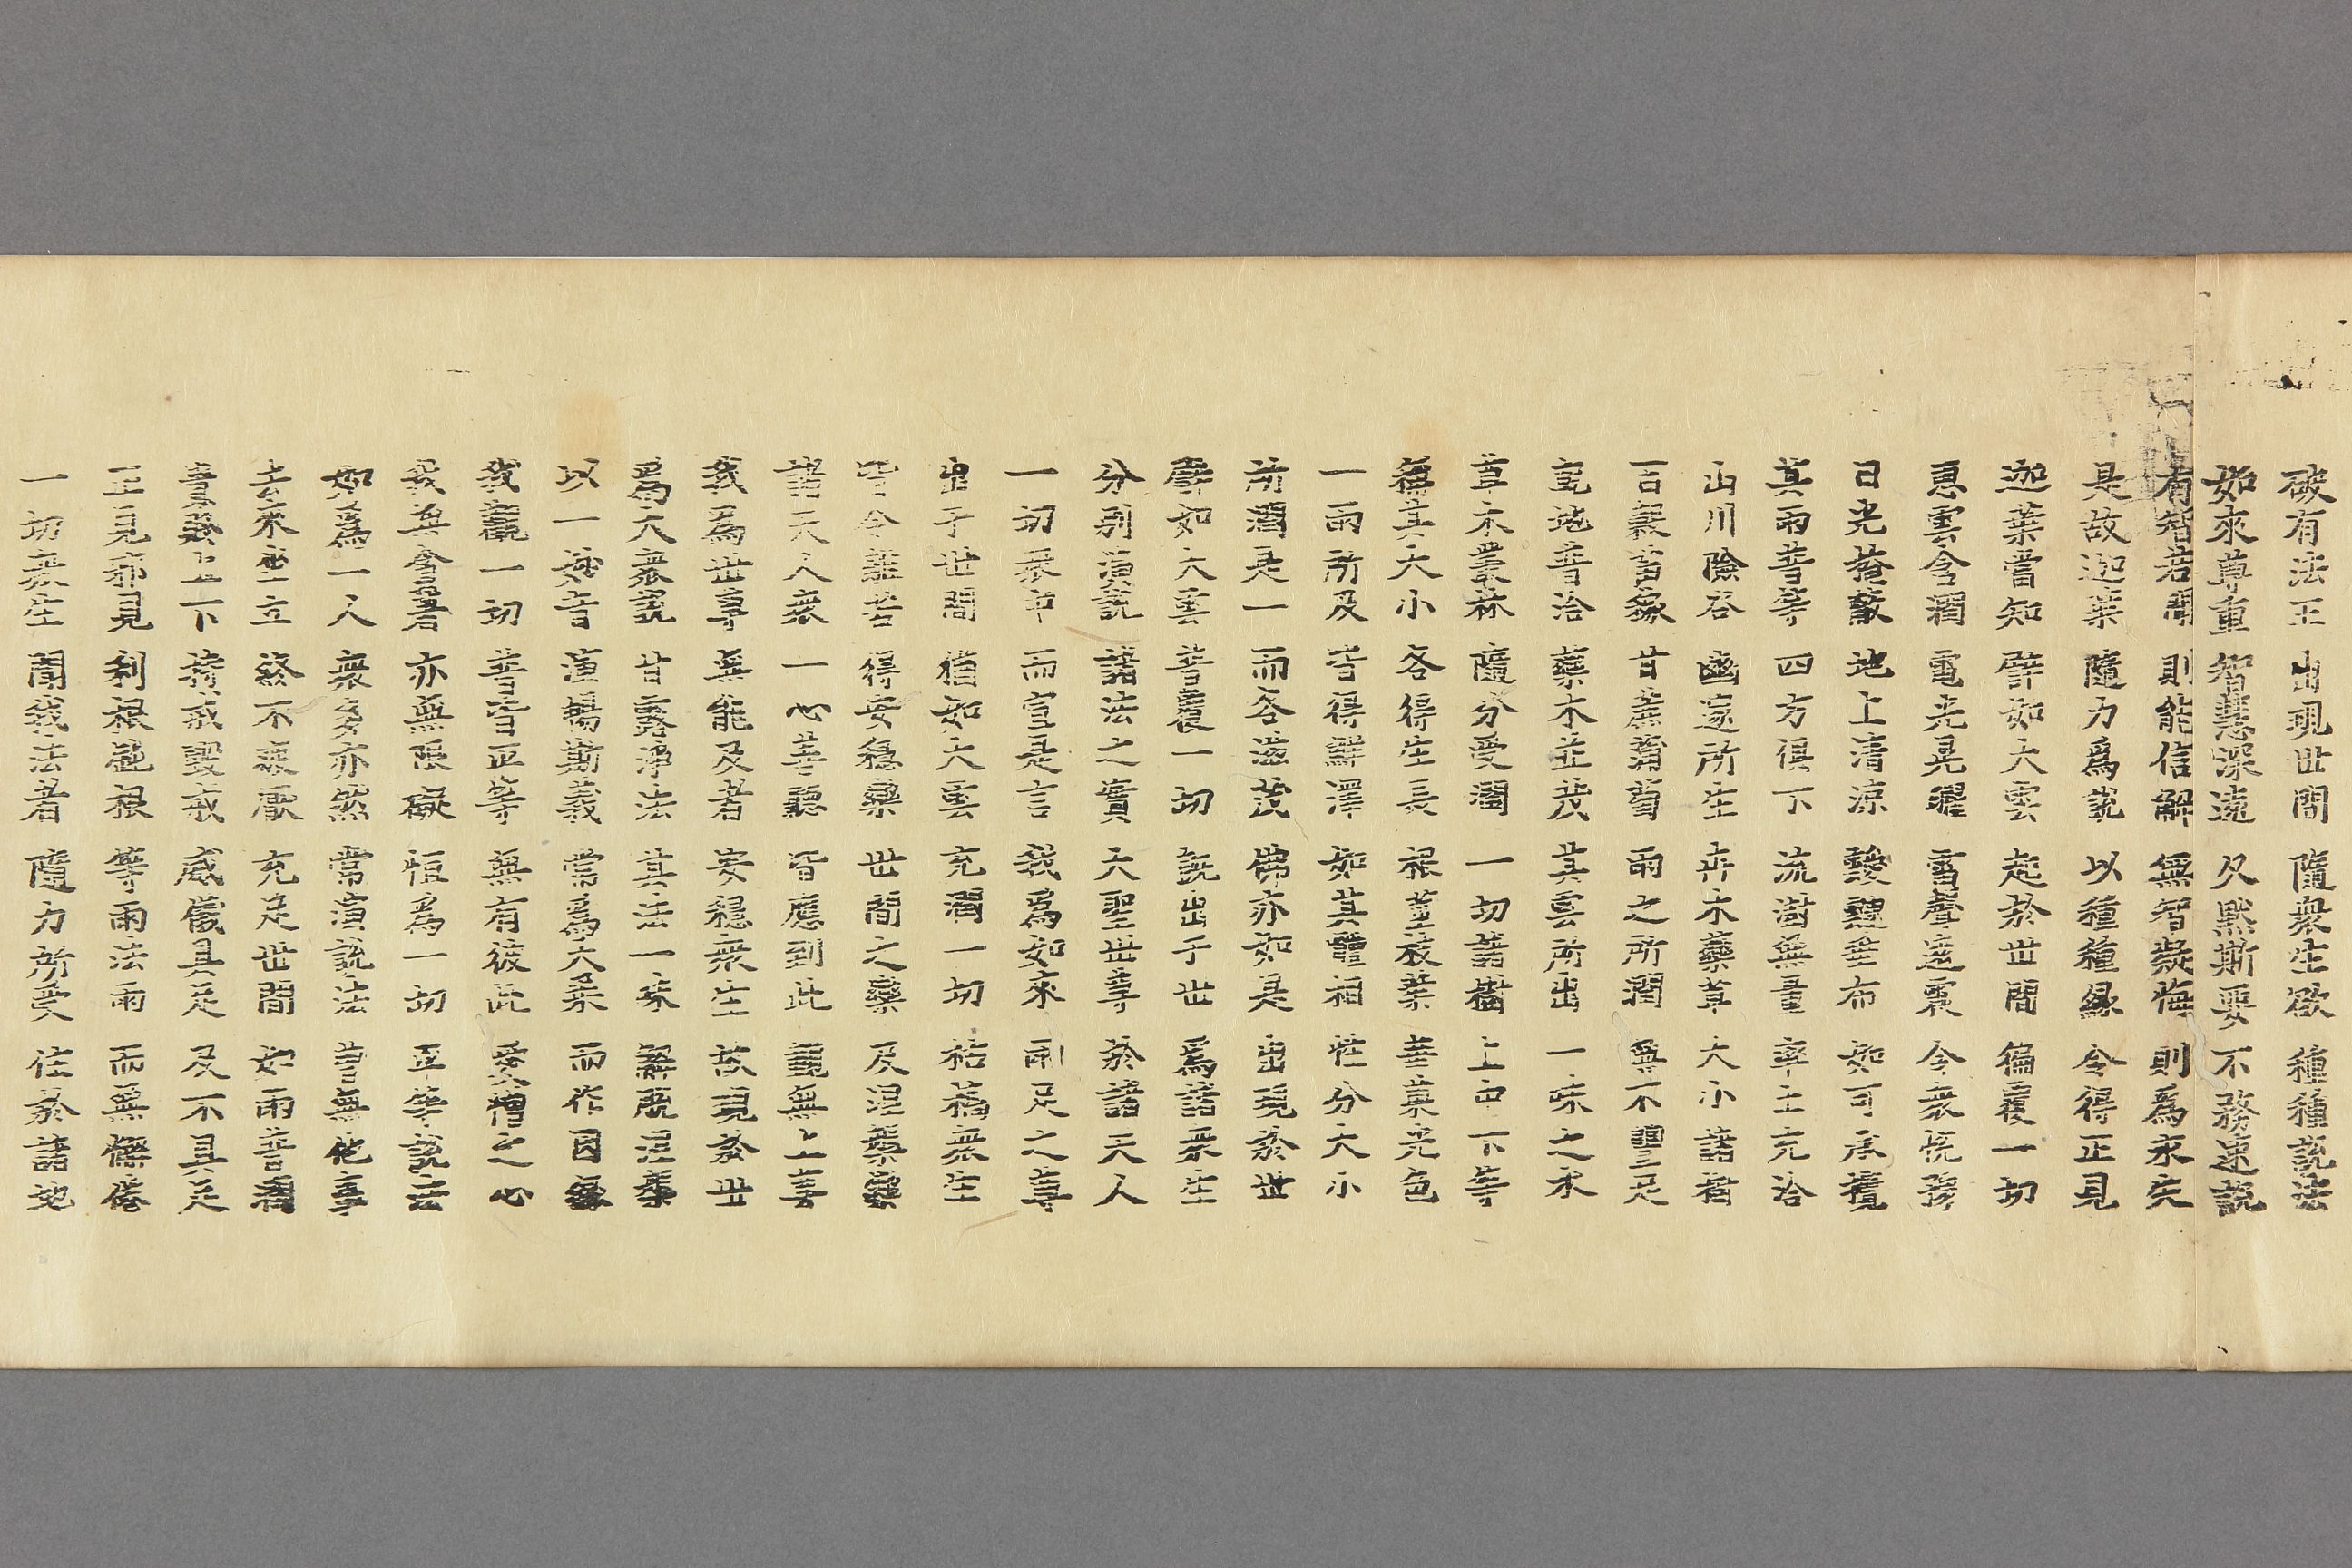 破有法王 出現世間 隨衆生欲 種種說法
如來尊重 智慧深遠 久黙斯要 不務速說
有智若聞 則能信解 無智疑悔 則爲永失
是故迦葉 隨力爲說 以種種緣 令得正見
迦葉當知 譬如大雲 起於世間 徧覆一切
惠雲含潤 電光晃曜 雷聲遠震 令衆恱豫
日光掩蔽 地上清凉 靉靆垂布 如可承攬
其雨普等 四方俱下 流澍無量 率土充洽
山川險谷 幽邃所生 卉木藥草 大小諸樹
百穀苗稼 甘蔗蒲萄 雨之所潤 無不豐足
乾地普洽 藥木並茂 其雲所出 一味之水
草木叢林 隨分受潤 一切諸樹 上中下等
稱其大小 各得生長 根莖枝葉 華菓光色
一雨所及 皆得鮮澤 如其體相 性分大小
所潤是一 而各滋茂 佛亦如是 出現於世
譬如大雲 普覆一切 旣出于世 爲諸衆生
分別演說 諸法之實 大聖世尊 於諸天人
一切衆中 而宣是言 我爲如來 兩足之尊
出于世間 猶如大雲 充潤一切 枯槁衆生
皆令離苦 得安穩樂 世間之樂 及涅槃樂
諸天人衆 一心善聽 皆應到此 觀無上尊
我爲世尊 無能及者 安穩衆生 故現於世
爲大衆說 甘露淨法 其法一味 解脫涅槃
以一妙音 演暢斯義 常爲大乘 而作因緣
我觀一切 普皆平等 無有彼此 愛憎之心
我無貪著 亦無限礙 恒爲一切 平等說法
如爲一人 衆多亦然 常演說法 曾無他事
去來坐立 終不疲厭 充足世間 如雨普潤
貴賤上下 持戒毀戒 威儀具足 及不具足
正見邪見 利根鈍根 等雨法雨 而無懈倦
一切衆生 聞我法者 隨力所受 住於諸地